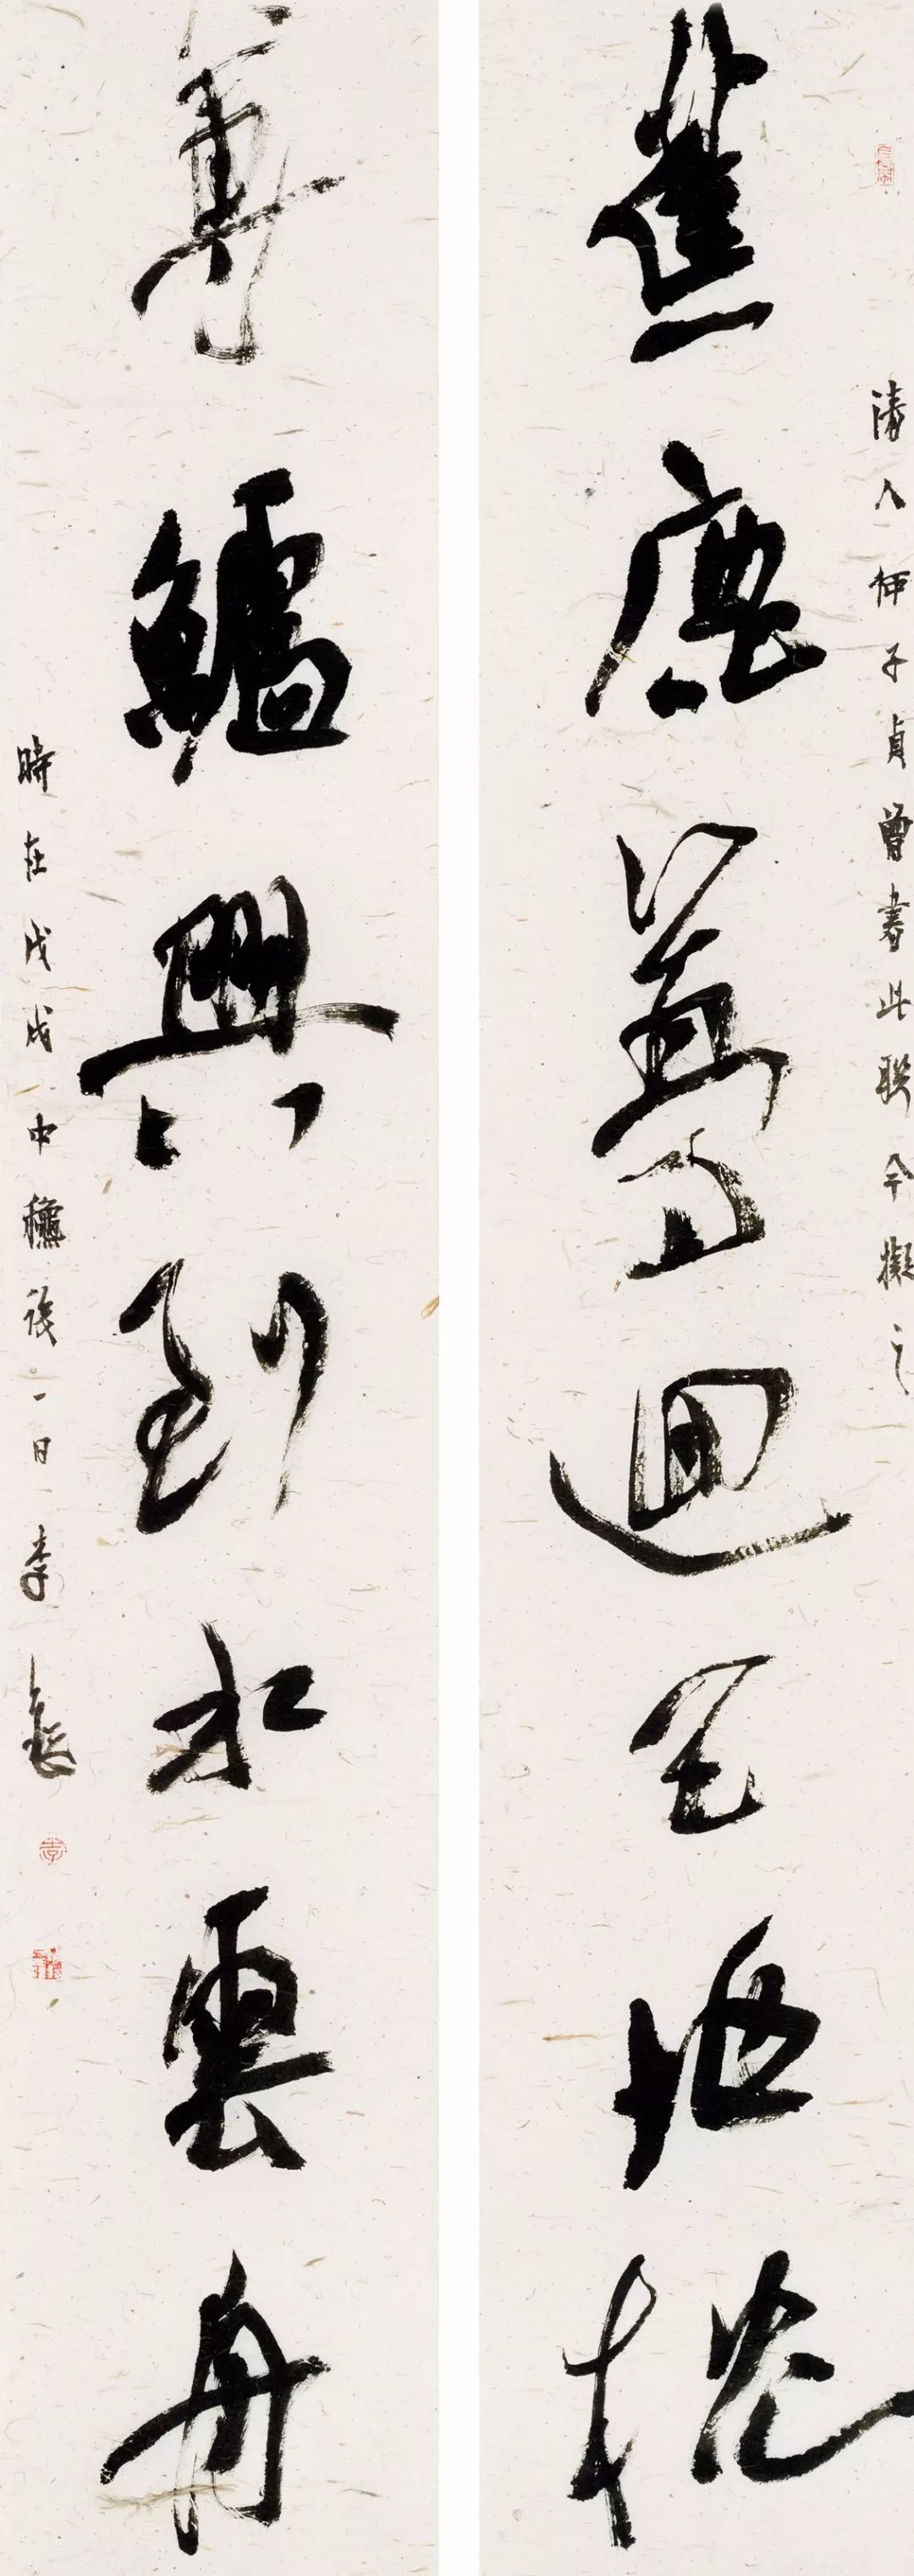 清人何子貞曾書此聯今擬之
蕉鹿夢迴天地枕
蓴鱸興到水雲舟
時在戊戌中龝後一日李